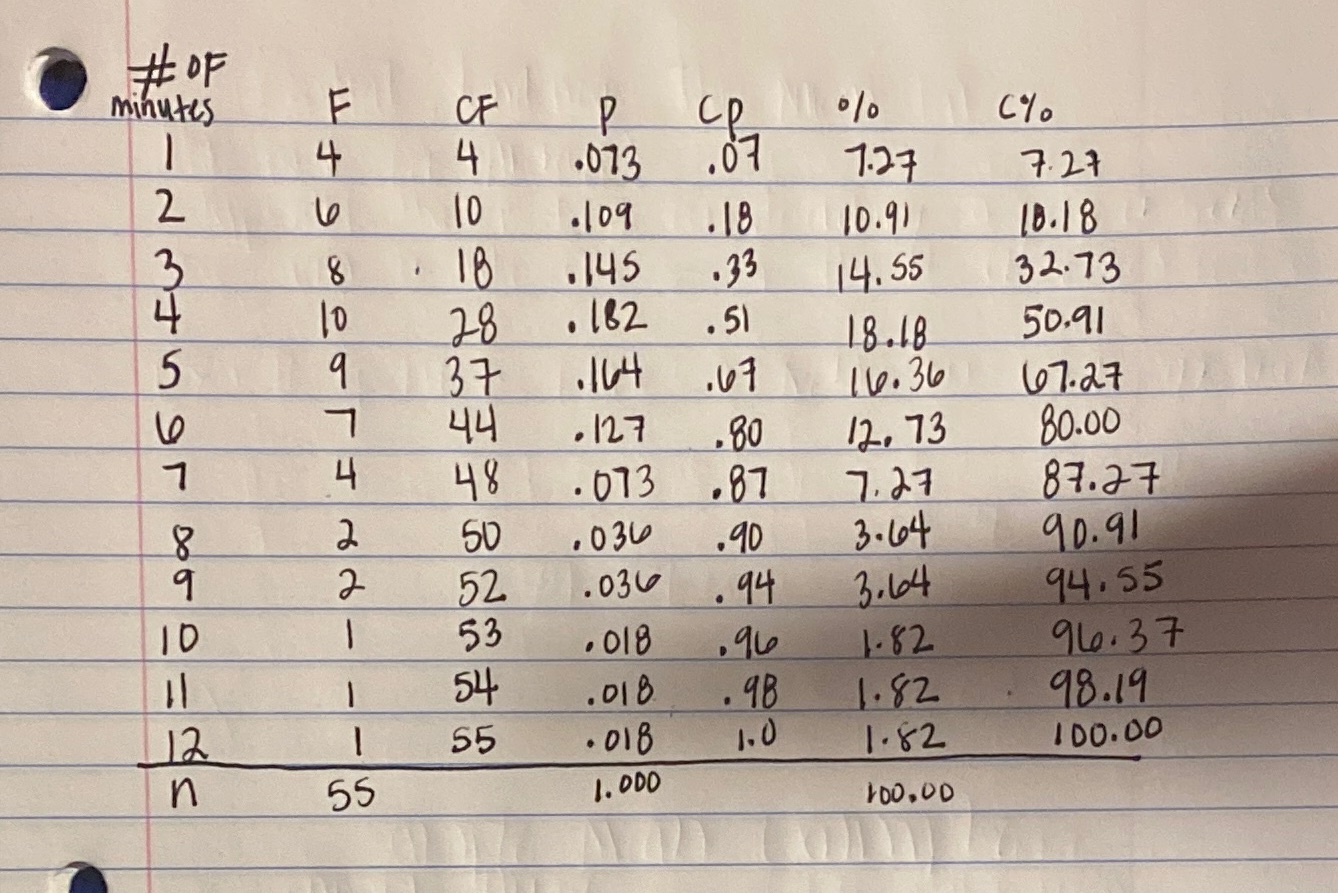 # OF
minutes F CF P Cp % C%
1 4 4 .073 .07 7.27 7.27
2 6 10 .109 .18 10.91 18.18
3 8 18 .145 .33 14.55 32.73
4 10 28 .182 .51 18.18 50.91
5 9 37 .164 .67 16.36 67.27
6 7 44 .127 .80 12.73 80.00
7 4 48 .073 .87 7.27 87.27
8 2 50 .036 .90 3.64 90.91
9 2 52 .036 .94 3.64 94.55
10 1 53 .018 .96 1.82 96.37
11 1 54 .018 .98 1.82 98.19
12 1 55 .018 1.0 1.82 100.00
n 55 1.000 100.00